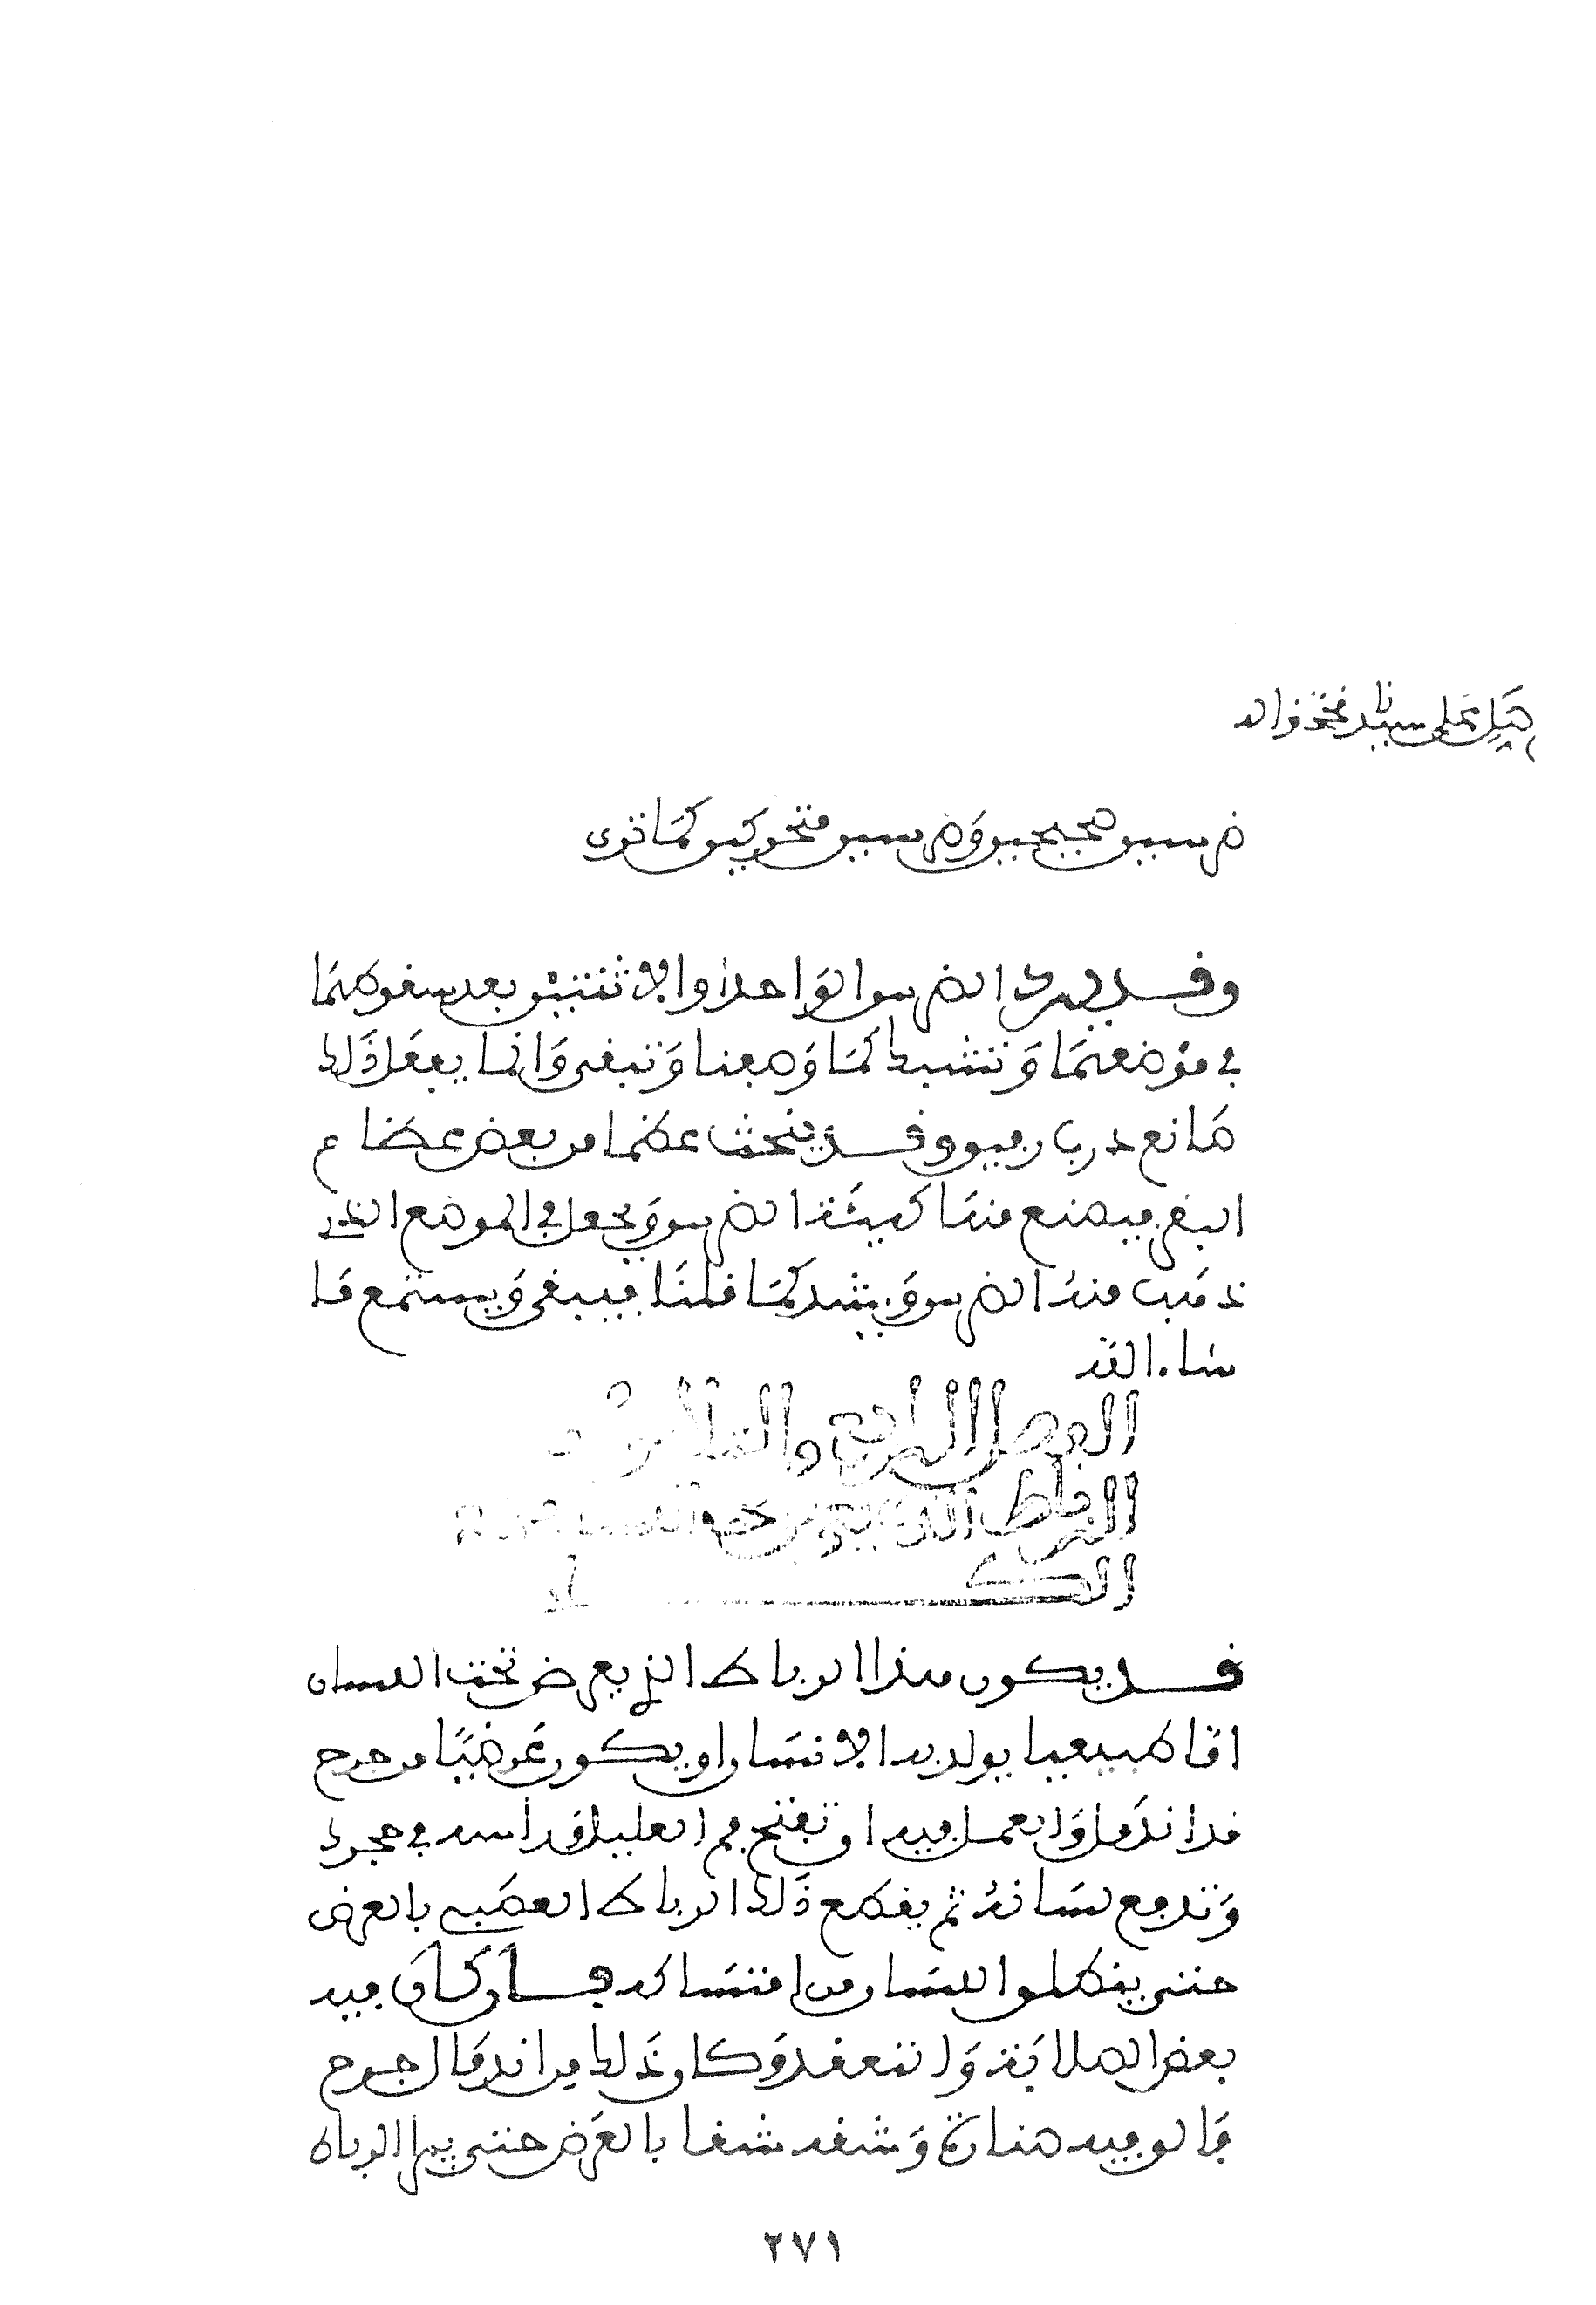 صل على سيدنا محمد واله
ضرسين صحيحين وضرسين متحركين كما ترى
وقد يرد الضرس الواحد او الاثنتين بعد سقوطهما
في موضعهما وتشبك كما وصفنا وتبقى وانما يفعل ذلك
صانع درب رفيق وقد ينحت عظما من بعض عضام
البقر فيصنع منها كهيئة الضرس ويجعل في الموضع الذي
ذهب منه الضرس ويشد كما قلنا فيبقى ويستمتع ما
شاء الله
الفصل الرابع والثلاثون في
الرباط الذي يعرض تحت اللسان
الكلام
قد يكون هذا الرباط الذي يعرض تحت اللسان
اما طبيعيا يولد به الانسان او يكون عرضيا من جرح
قد اندمل والعمل فيه ان تفتح فم العليل وراسه في حجرك
وترفع لسانه ثم يقطع ذلك الرباط العصبي بالعرض
حتى ينطلق اللسان من امتساكه فان كان فيه
بعض الصلابة وانتعقد وكان ذلك من اندمال جرح
فالق فيه صنارة وشقه شقا بالعرض حتى يبرا الرباط
٢٧١